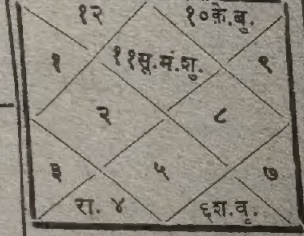 १२ १०के.बु.
१ ११सू.मं.शु. ९
२ ८
३ ५ ७
रा. ४ ६श.वृ.